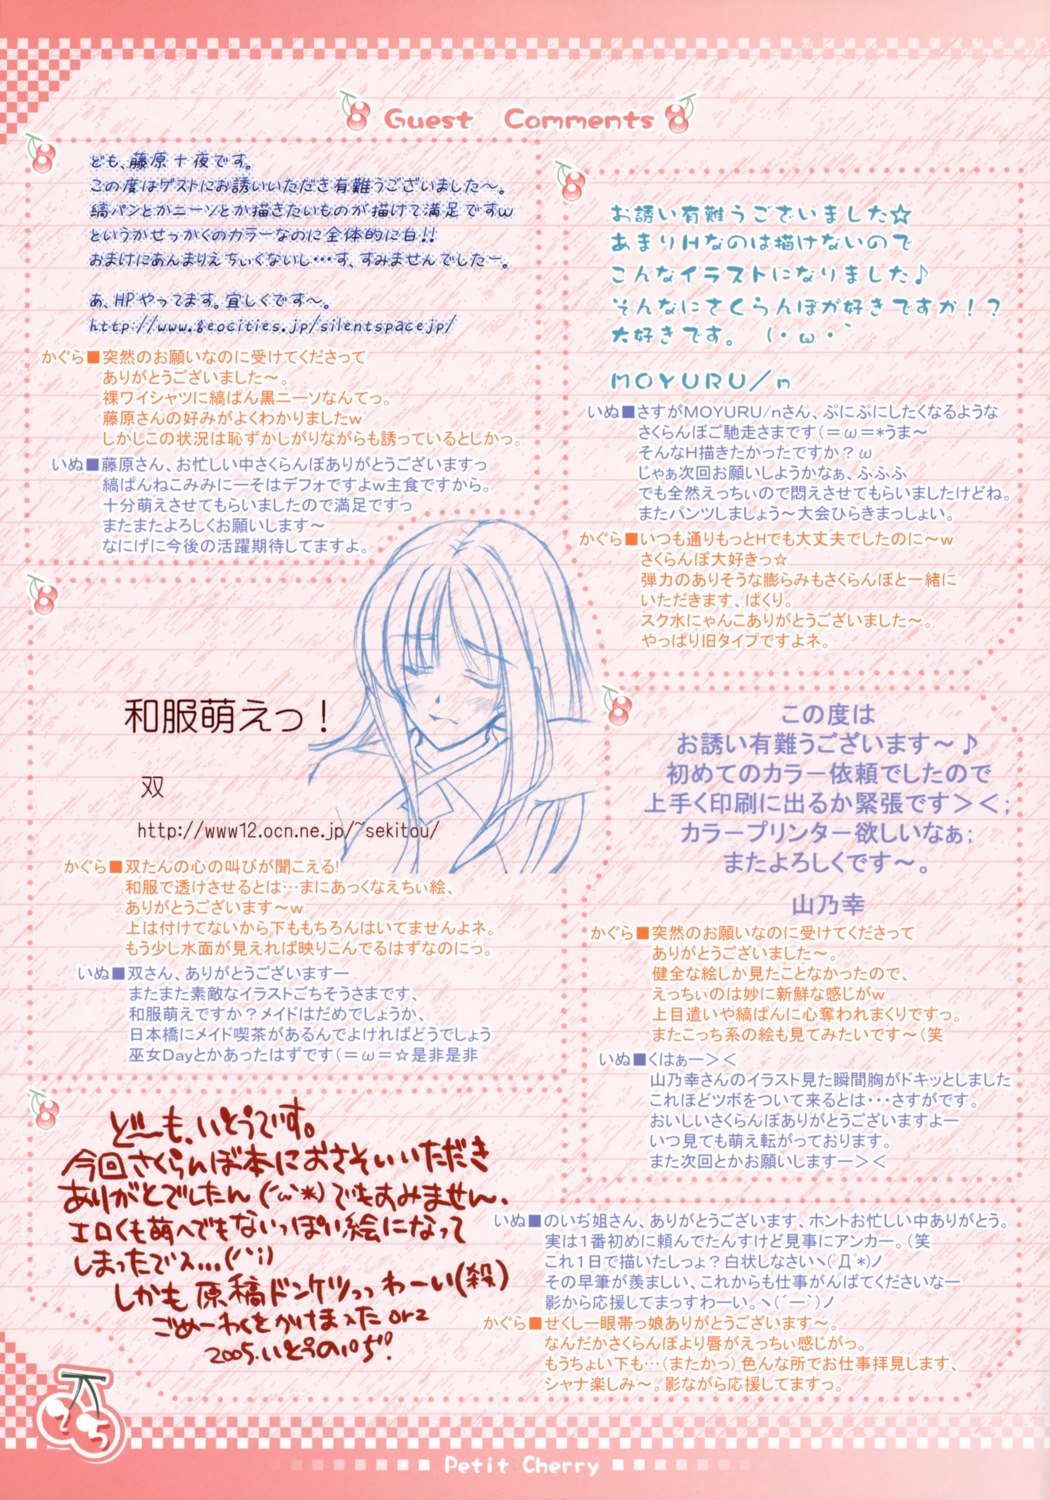 Guest Comments
ども、藤原十夜です。
この度はゲストにお誘いいただき有難うございました〜。
縞パンとかニーソとか描きたいものが描けて満足ですw
というかせっかくのカラーなのに全体的に白!!
おまけにあんまりえちぃくないし…す、すみませんでしたー。
あ、HPやってます。宜しくです〜。
http://www.geocities.jp/silentspacejp/
かぐら■突然のお願いなのに受けてくださって
ありがとうございました〜。
裸ワイシャツに縞ぱん黒ニーソなんてっ。
藤原さんの好みがよくわかりましたw
しかしこの状況は恥ずかしがりながらも誘っているとじかっ。
いぬ■藤原さん、お忙しい中さくらんぼありがとうございますっ
縞ぱんねこみみにーそはデフォですよw主食ですから。
十分萌えさせてもらいましたので満足ですっ
またまたよろしくお願いします〜
なにげに今後の活躍期待してますよ。
お誘い有難うございました☆
あまりHなのは描けないので
こんなイラストになりました♪
そんなにさくらんぼが好きですか！？
大好きです。 (・ω・｀
MOYURU/n
いぬ■さすがMOYURU/nさん、ぷにぷにしたくなるような
さくらんぼご馳走さまです(＝ω＝*うま〜
そんなH描きたかったですか？ω
じゃぁ次回お願いしようかなぁ、ふふふ
でも全然えっちぃので悶えさせてもらいましたけどね。
またパンツしましょう〜大会ひらきまっしょい。
かぐら■いつも通りもっとHでも大丈夫でしたのに〜w
さくらんぼ大好きっ☆
弾力のありそうな膨らみもさくらんぼと一緒に
いただきます、ぱくり。
スク水にゃんこありがとうございました〜。
やっぱり旧タイプですよネ。
和服萌えっ！
双
http://www12.ocn.ne.jp/~sekitou/
かぐら■双たんの心の叫びが聞こえる!
和服で透けさせるとは…まにあっくなえちぃ絵、
ありがとうございます〜w
上は付けてないから下ももちろんはいてませんよネ。
もう少し水面が見えれば映りこんでるはずなのにっ。
いぬ■双さん、ありがとうございますー
またまた素敵なイラストごちそうさまです、
和服萌えですか？メイドはだめでしょうか、
日本橋にメイド喫茶があるんでよければどうでしょう
巫女Dayとかあったはずです(＝ω＝☆是非是非
この度は
お誘い有難うございます〜♪
初めてのカラー依頼でしたので
上手く印刷に出るか緊張です＞＜;
カラープリンター欲しいなぁ;
またよろしくです〜。
山乃幸
かぐら■突然のお願いなのに受けてくださって
ありがとうございました〜。
健全な絵しか見たことなかったので、
えっちぃのは妙に新鮮な感じがw
上目遣いや縞ぱんに心奪われまくりですっ。
またこっち系の絵も見てみたいです〜(笑
いぬ■くはぁー＞＜
山乃幸さんのイラスト見た瞬間胸がドキッとしました
これほどツボをついて来るとは・・・さすがです。
おいしいさくらんぼありがとうございますよー
いつ見ても萌え転がっております。
また次回とかお願いしますー＞＜
ど〜も、いとうです。
今回さくらんぼ本におさそいいただき
ありがとでしたん(´ω`*)でもすみません、
エロくも萌へでもないっぽい絵になって
しまったでス…(´`;)
しかも原稿ドンケツっっわーい(殺)
ごめーわくをかけまったorz
2005.いとうのいぢ!
いぬ■のいぢ姐さん、ありがとうございます、ホントお忙しい中ありがとう。
実は1番初めに頼んでたんすけど見事にアンカー。(笑
これ1日で描いたしょ？白状しなさいヽ(´Д`*)ノ
その早筆が羨ましい、これからも仕事がんばてくださいなー
影から応援してまっすわーい。ヽ(´ー｀)ノ
かぐら■せくしー眼帯っ娘ありがとうございます〜。
なんだかさくらんぼより唇がえっちぃ感じがっ。
もうちょい下も…(またかっ) 色んな所でお仕事拝見します、
シャナ楽しみ〜。影ながら応援してますっ。
Petit Cherry